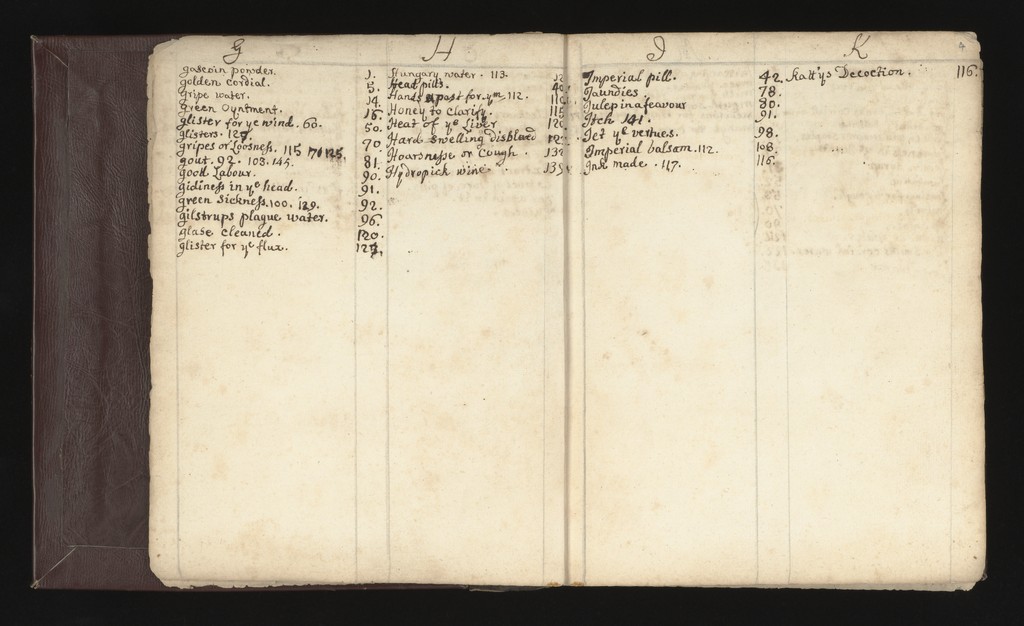 G
gascoin powder. 1.
golden Cordial. 5.
Gripe water. 14.
Green Oyntment. 16.
glister for ye wind. 60. 50.
glisters. 70.
gripes or Loosness. 115 125. 81.
gout. 92. 103. 145. 90.
good Labour. 91.
gidiness in ye head. 92.
green Sickness. 100. 129. 96.
gilstrups plague water. 120.
glase cleaned.
glister for ye flux.
H
Hungary water. 113.
Head pills.
Hands a past for ym 112.
Honey to clarify.
Heat of ye Liver
Hard swelling
Hoarsness or Cough.
Hydropick wine
I
4
Imperial pill. 42.
Jaundies 78.
Julep in a feavour 80.
Itch 141. 91.
Jet ye vertues. 98.
Imperial balsam. 112. 108.
Ink made. 117. 116.
K
Kattys Decoction. 116.